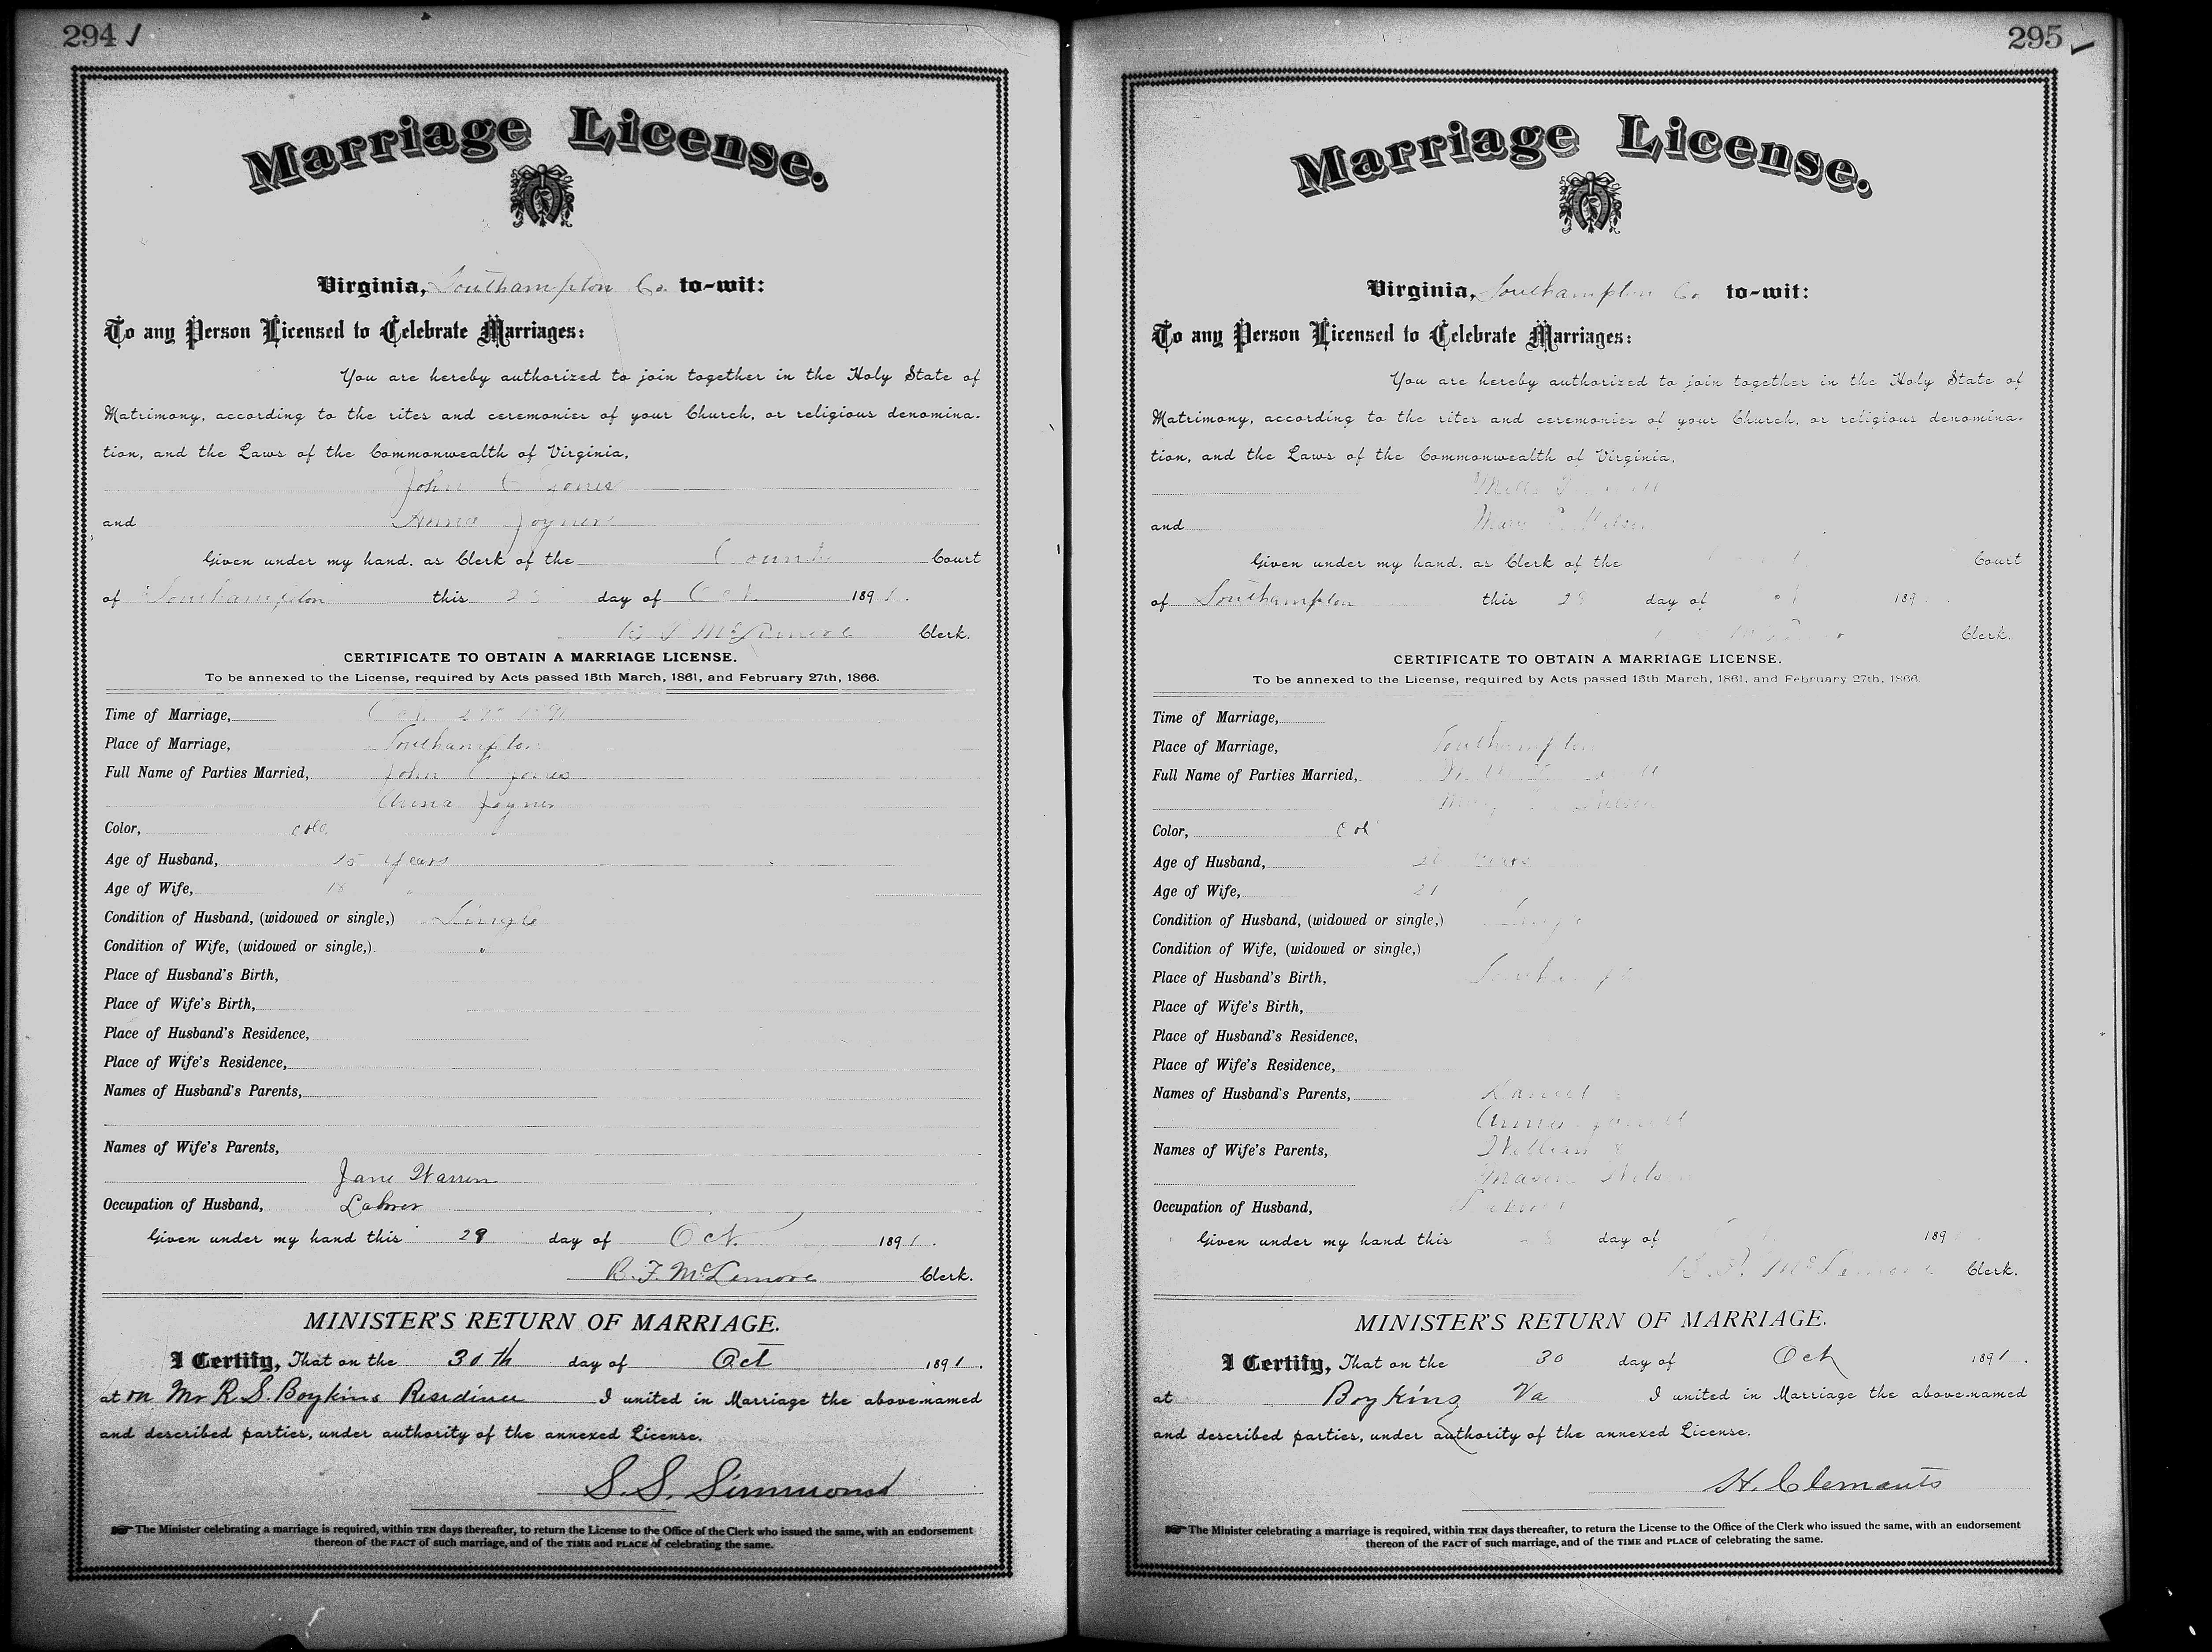 294
Marriage License.
Virginia, Southampton Co. to-wit:
To any Person Licensed to Celebrate Marriages:
You are hereby authorized to join together in the Holy State of
Matrimony, according to the rites and ceremonies of your Church, or religious denomina-
tion, and the Laws of the Commonwealth of Virginia,
John C Jones
and Anna Joyner
Given under my hand, as Clerk of the County Court
of Southampton this day of Oct 1891.
B F McLemore Clerk.
CERTIFICATE TO OBTAIN A MARRIAGE LICENSE.
To be annexed to the License, required by Acts passed 15th March, 1861, and February 27th, 1866.
Time of Marriage,
Place of Marriage, Southampton
Full Name of Parties Married, John C Jones
Anna Joyner
Color, Col
Age of Husband, years
Age of Wife, 18 "
Condition of Husband, (widowed or single,) Single
Condition of Wife, (widowed or single,) "
Place of Husband's Birth,
Place of Wife's Birth,
Place of Husband's Residence,
Place of Wife's Residence,
Names of Husband's Parents,
Names of Wife's Parents,
Jane Warren
Occupation of Husband, Laborer
Given under my hand this 29 day of Oct. 1891.
B. F. McLemore Clerk.
MINISTER'S RETURN OF MARRIAGE.
I Certify, That on the 30th day of Oct 1891.
at on Mr R. S. Boykins Residince I united in Marriage the above-named
and described parties, under authority of the annexed License.
S. S. Simmons
The Minister celebrating a marriage is required, within TEN days thereafter, to return the License to the Office of the Clerk who issued the same, with an endorsement
thereon of the FACT of such marriage, and of the TIME and PLACE of celebrating the same.
295
Marriage License.
Virginia, Southampton Co to-wit:
To any Person Licensed to Celebrate Marriages:
You are hereby authorized to join together in the Holy State of
Matrimony, according to the rites and ceremonies of your Church, or religious denomina-
tion, and the Laws of the Commonwealth of Virginia,
Mills
and Mary
Given under my hand, as Clerk of the Court
of Southampton this 28 day of 189
Clerk.
CERTIFICATE TO OBTAIN A MARRIAGE LICENSE.
To be annexed to the License, required by Acts passed 15th March, 1861, and February 27th, 1866.
Time of Marriage,
Place of Marriage, Southampton
Full Name of Parties Married,
Color, Col
Age of Husband, years
Age of Wife, 21
Condition of Husband, (widowed or single,) Single
Condition of Wife, (widowed or single,)
Place of Husband's Birth, Southampton
Place of Wife's Birth,
Place of Husband's Residence,
Place of Wife's Residence,
Names of Husband's Parents, Daniel
Annie
Names of Wife's Parents, William &
Wilson
Occupation of Husband, Laborer
Given under my hand this day of 189
B. F. McLemore Clerk.
MINISTER'S RETURN OF MARRIAGE.
I Certify, That on the 30 day of Oct 1891.
at Boykins Va I united in Marriage the above-named
and described parties, under authority of the annexed License.
H. Clemants
The Minister celebrating a marriage is required, within TEN days thereafter, to return the License to the Office of the Clerk who issued the same, with an endorsement
thereon of the FACT of such marriage, and of the TIME and PLACE of celebrating the same.